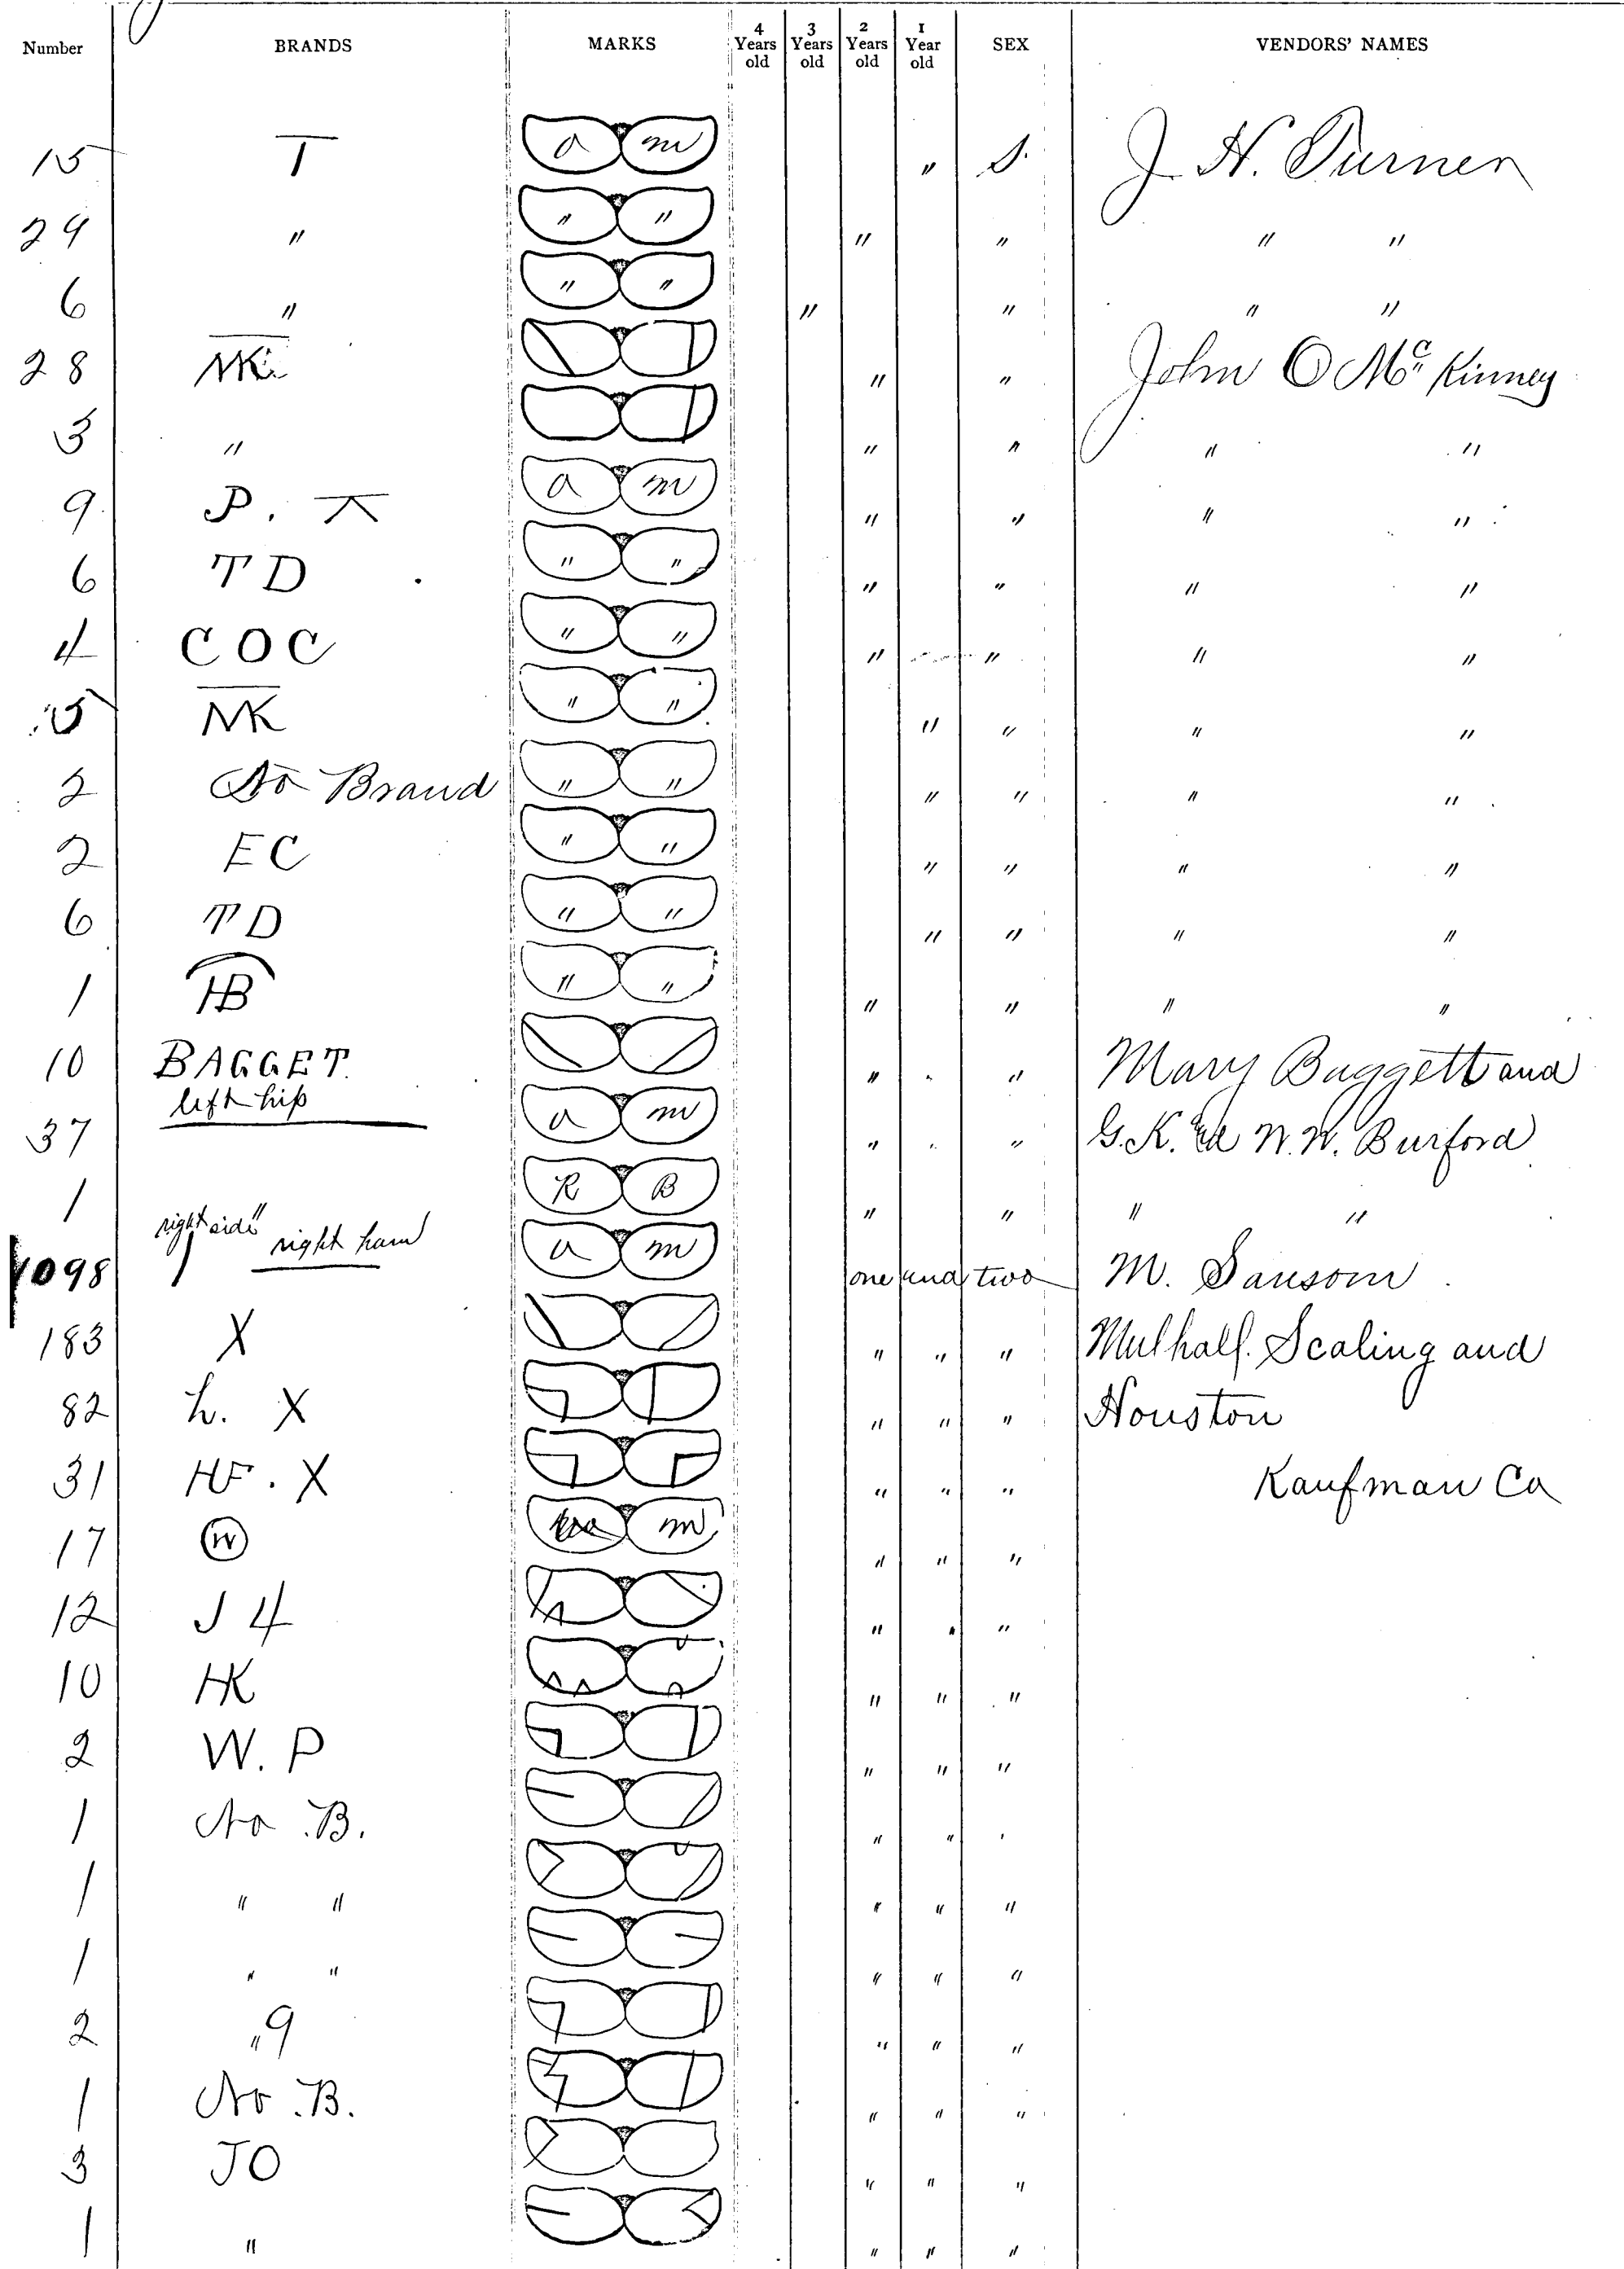 Number BRANDS MARKS 4 Years old 3 Years old 2 Years old 1 Year old SEX VENDORS' NAMES
15 T a m " S. J. H. Turner
24 " " " " " " "
6 " " " " " " "
28 NK " " John O McKinney
3 " " " " "
9 P. a m " " " "
6 TD " " " " " "
4 COC " " " " " "
15 NK " " " " " "
2 No Brand " " " " " "
2 EC " " " " " "
6 TD " " " " " "
1 HB " " " " " "
10 BAGGET. " " Mary Baggett and
left hip
37 a m " " G. K. W. W. Burford
1 R B " " " "
right side right ham
1098 a m one and two M. Sansom
183 X " " " Mulhall. Scaling and
82 h. X " " " Houston
31 HF. X " " " Kaufman Co
17 W m " " "
12 J 4 " " "
10 HK " " "
2 W. P " " "
1 No .B. " "
1 " " " " "
1 " " " " "
2 " 9 " " "
1 No .B. " " "
3 JO " " "
1 " " " "